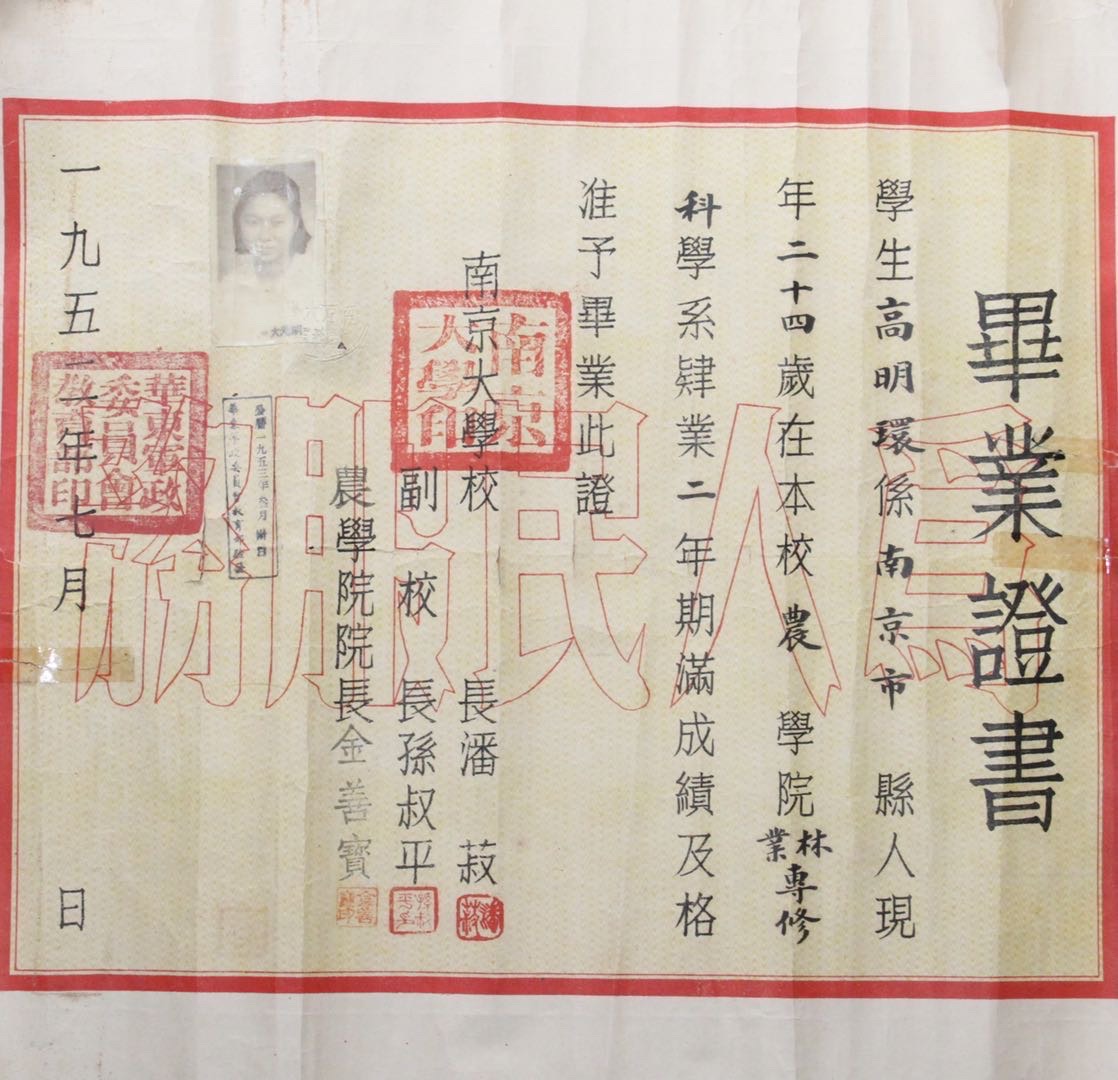 畢業證書
學生高明環係南京市縣人現
年二十四歲在本校農學院林業專修
科學系肄業二年期滿成績及格
准予畢業此證
南京大學校長潘菽
副校長孫叔平
農學院院長金善寶
一九五二年七月日
為人民服務
南京大學印
華東軍政委員會教育部印